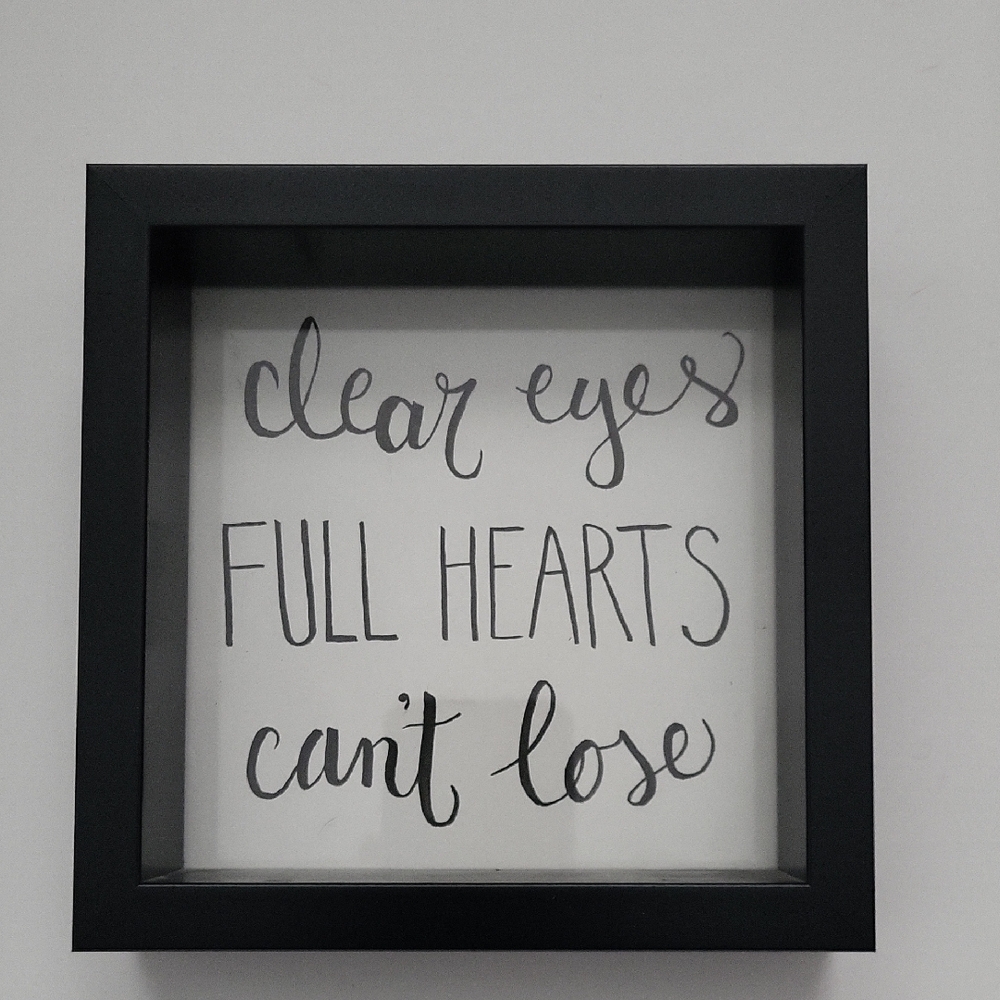 clear eyes
FULL HEARTS
can't lose